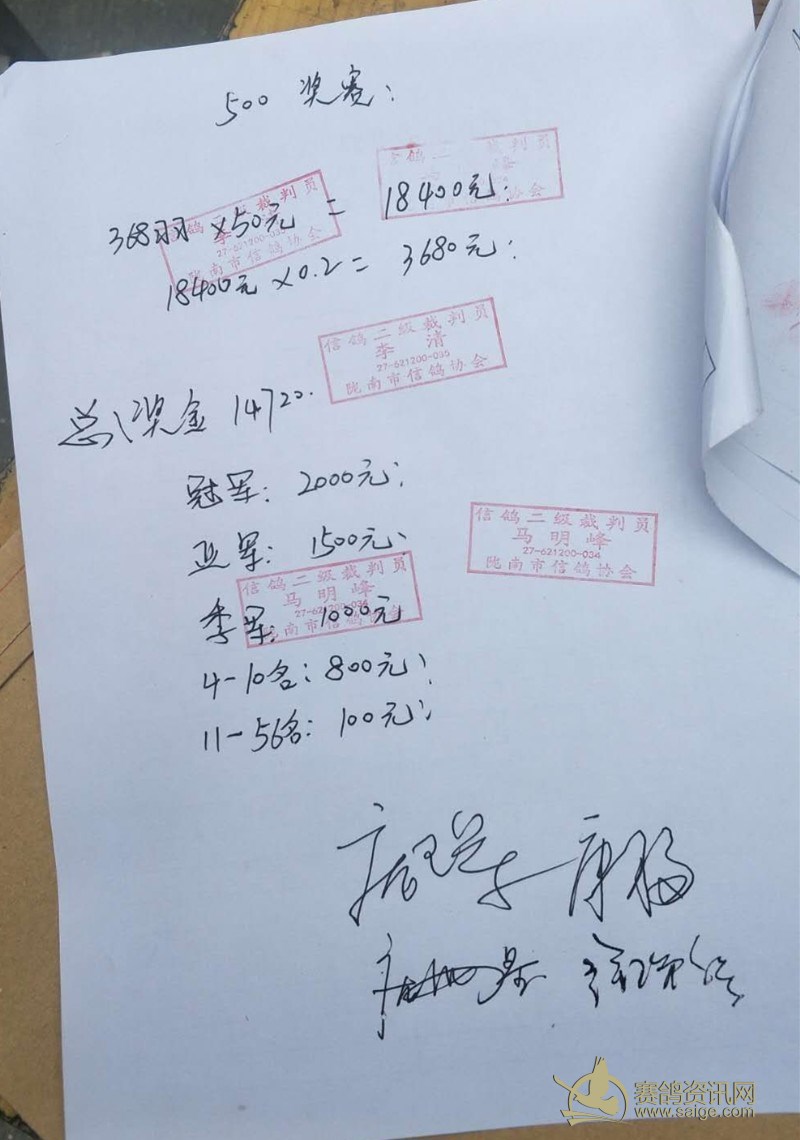 500 奖赛:
信鸽二 裁判员
368羽 ×50元 = 18400元;
信鸽二级裁判员
27-621200-035
陇南市信鸽协会
18400元 ×0.2 = 3680元;
信鸽二级裁判员
李 清
27-621200-035
陇南市信鸽协会
总奖金 14720.
冠军: 2000元;
信鸽二级裁判员
马明峰
27-621200-034
陇南市信鸽协会
亚军: 1500元;
信鸽二级裁判员
马明峰
27-621200-034
陇南市信鸽协会
季军: 1000元
4-10名: 800元;
11-56名: 100元;
赛鸽资讯网
www.saige.com